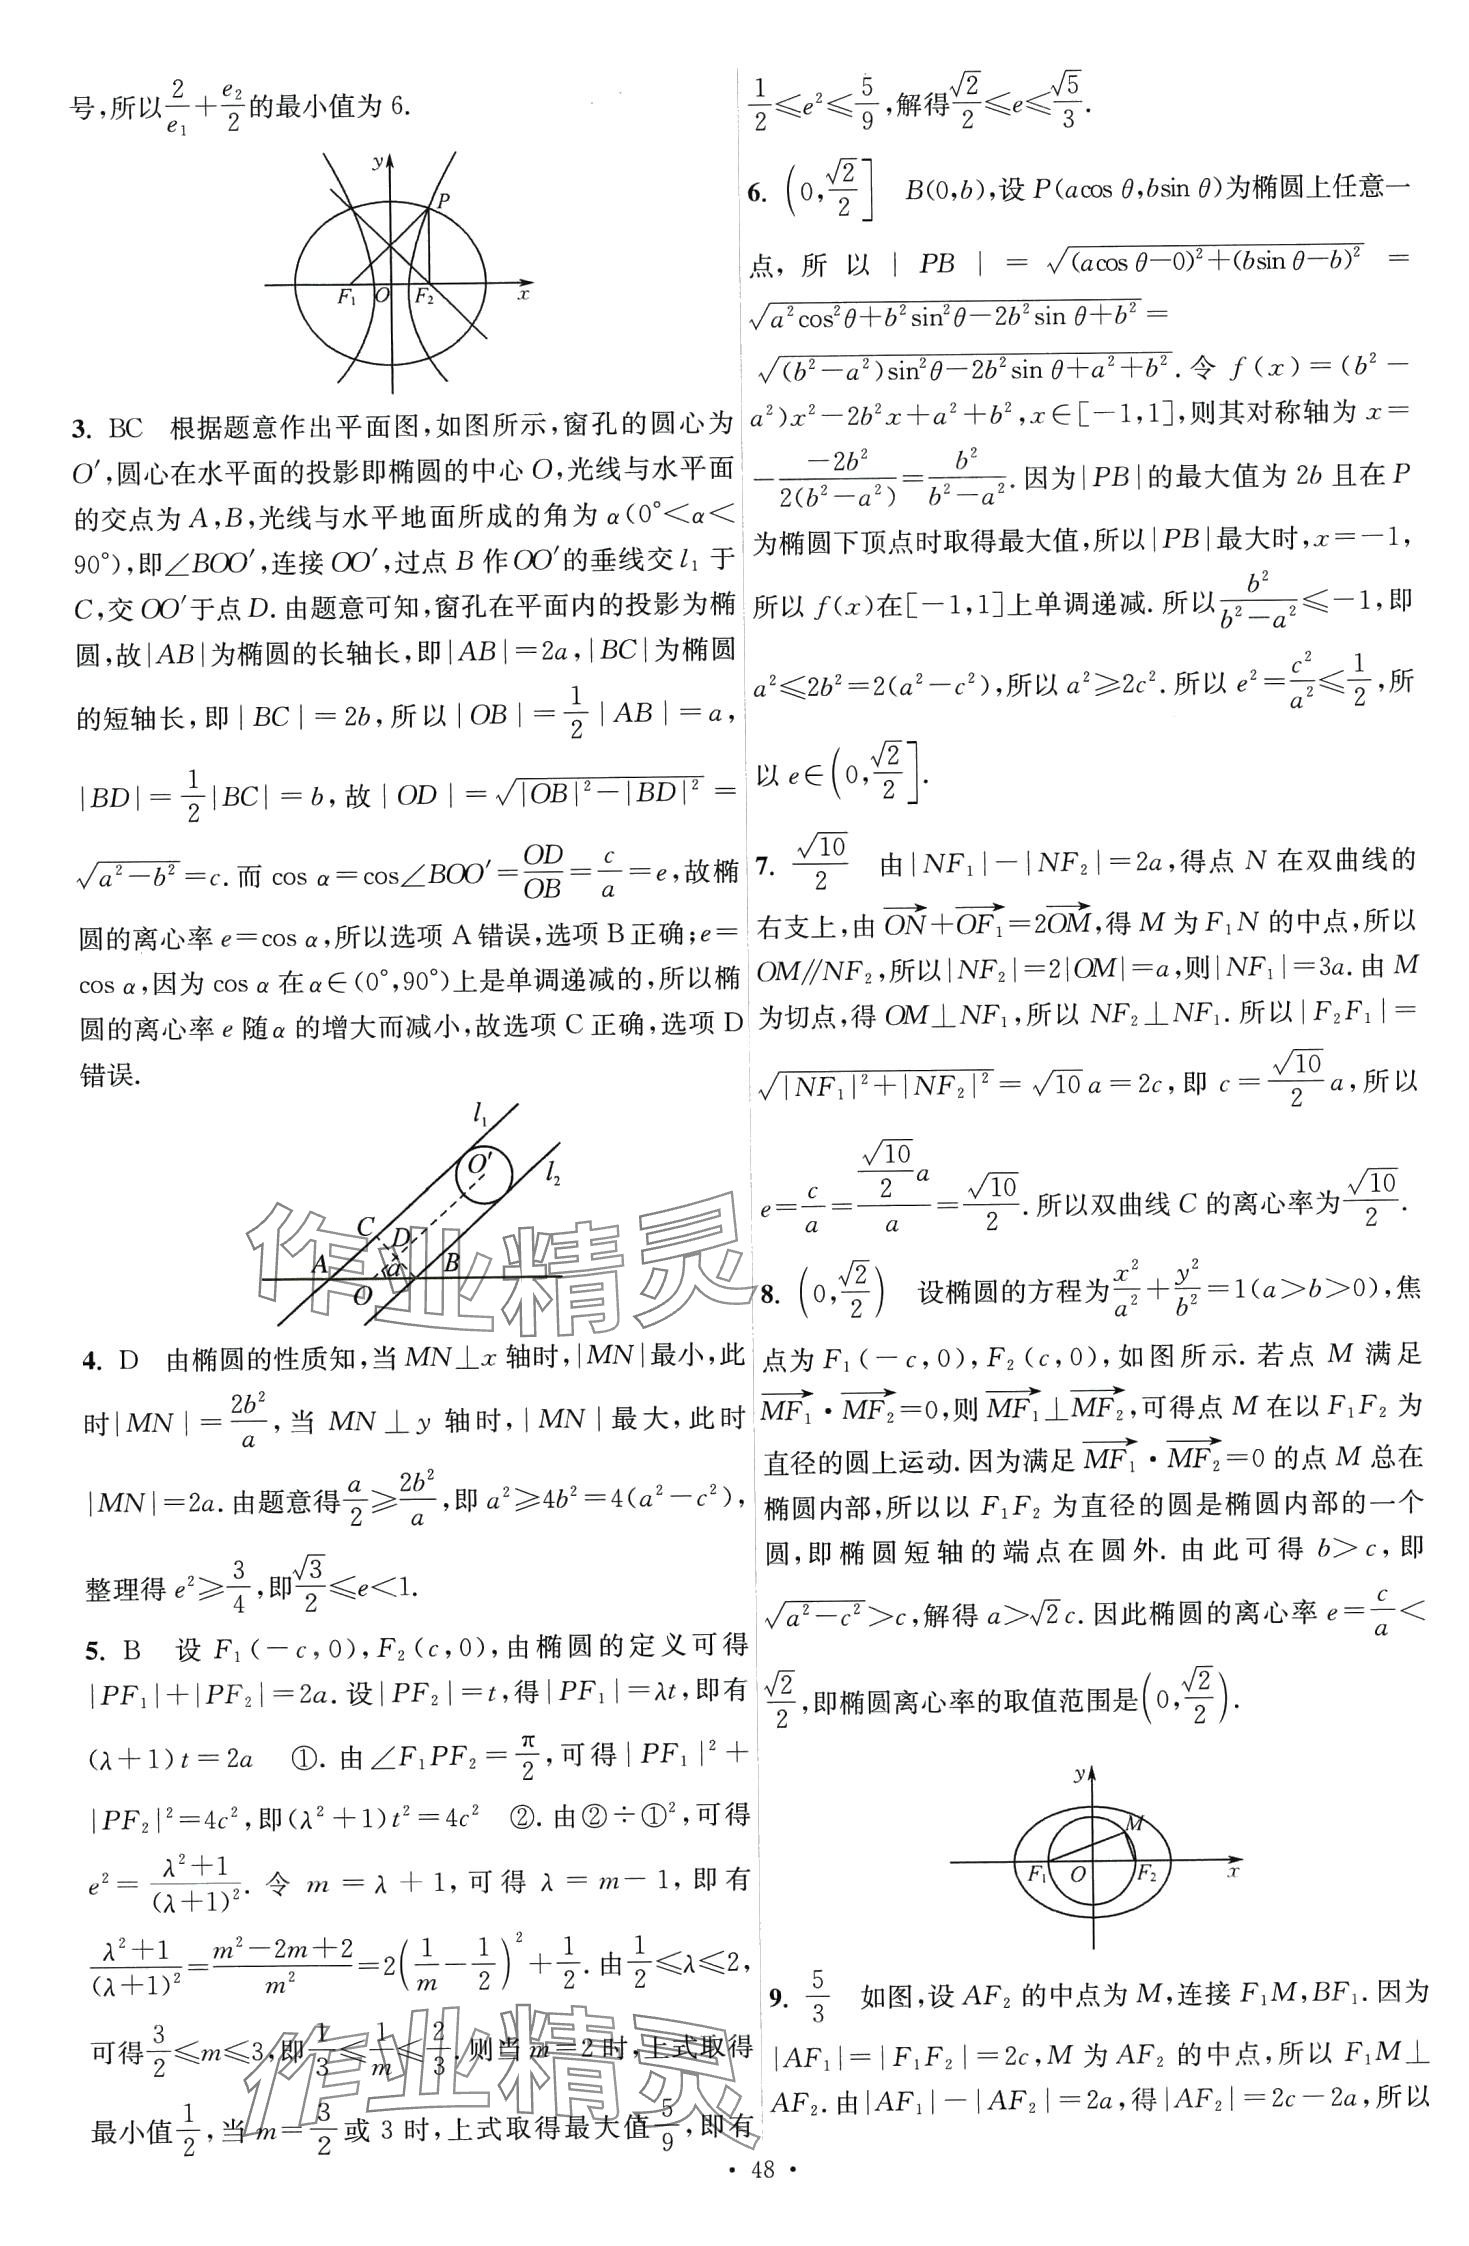 号,所以2/e₁+e₂/2的最小值为 6.
y
P
F₁ O F₂ x
3. BC 根据题意作出平面图,如图所示,窗孔的圆心为
O′,圆心在水平面的投影即椭圆的中心 O,光线与水平面
的交点为 A,B,光线与水平地面所成的角为 α(0°<α<
90°),即∠BOO′,连接 OO′,过点 B 作 OO′的垂线交 l₁ 于
C,交 OO′于点 D. 由题意可知,窗孔在平面内的投影为椭
圆,故|AB|为椭圆的长轴长,即|AB|=2a,|BC|为椭圆
的短轴长,即|BC|=2b,所以|OB|=1/2|AB|=a,
|BD|=1/2|BC|=b,故|OD|=√(|OB|²-|BD|²)=
√(a²-b²)=c. 而 cos α=cos∠BOO′=OD/OB=c/a=e,故椭
圆的离心率 e=cos α,所以选项 A 错误,选项 B 正确;e=
cos α,因为 cos α 在 α∈(0°,90°)上是单调递减的,所以椭
圆的离心率 e 随 α 的增大而减小,故选项 C 正确,选项 D
错误.
l₁
O′
l₂
C
D
A α B
O
4. D 由椭圆的性质知,当 MN⊥x 轴时,|MN|最小,此
时|MN|=2b²/a,当 MN⊥y 轴时,|MN|最大,此时
|MN|=2a. 由题意得a/2≥2b²/a,即 a²≥4b²=4(a²-c²),
整理得 e²≥3/4,即√3/2≤e<1.
5. B 设 F₁(-c,0),F₂(c,0),由椭圆的定义可得
|PF₁|+|PF₂|=2a. 设|PF₂|=t,得|PF₁|=λt,即有
(λ+1)t=2a ①. 由∠F₁PF₂=π/2,可得|PF₁|²+
|PF₂|²=4c²,即(λ²+1)t²=4c² ②. 由②÷①²,可得
e²=(λ²+1)/(λ+1)². 令 m=λ+1,可得 λ=m-1,即有
(λ²+1)/(λ+1)²=(m²-2m+2)/m²=2(1/m-1/2)²+1/2. 由1/2≤λ≤2,
可得3/2≤m≤3,即1/3≤1/m≤2/3. 则当 m=2 时,上式取得
最小值1/2,当 m=3/2或 3 时,上式取得最大值5/9,即有
1/2≤e²≤5/9,解得√2/2≤e≤√5/3.
6. (0,√2/2] B(0,b),设 P(acos θ,bsin θ)为椭圆上任意一
点,所以|PB|=√((acos θ-0)²+(bsin θ-b)²)=
√(a²cos²θ+b²sin²θ-2b²sin θ+b²)=
√((b²-a²)sin²θ-2b²sin θ+a²+b²). 令 f(x)=(b²-
a²)x²-2b²x+a²+b²,x∈[-1,1],则其对称轴为 x=
-(-2b²)/(2(b²-a²))=b²/(b²-a²). 因为|PB|的最大值为 2b 且在 P
为椭圆下顶点时取得最大值,所以|PB|最大时,x=-1,
所以 f(x)在[-1,1]上单调递减. 所以b²/(b²-a²)≤-1,即
a²≤2b²=2(a²-c²),所以 a²≥2c². 所以 e²=c²/a²≤1/2,所
以 e∈(0,√2/2].
7. √10/2 由|NF₁|-|NF₂|=2a,得点 N 在双曲线的
右支上,由 ON→+OF₁→=2OM→,得 M 为 F₁N 的中点,所以
OM∥NF₂,所以|NF₂|=2|OM|=a,则|NF₁|=3a. 由 M
为切点,得 OM⊥NF₁,所以 NF₂⊥NF₁. 所以|F₂F₁|=
√(|NF₁|²+|NF₂|²)=√10a=2c,即 c=√10/2 a,所以
e=c/a=(√10/2 a)/a=√10/2. 所以双曲线 C 的离心率为√10/2.
8. (0,√2/2) 设椭圆的方程为x²/a²+y²/b²=1(a>b>0),焦
点为 F₁(-c,0),F₂(c,0),如图所示. 若点 M 满足
MF₁→·MF₂→=0,则 MF₁→⊥MF₂→,可得点 M 在以 F₁F₂ 为
直径的圆上运动. 因为满足 MF₁→·MF₂→=0 的点 M 总在
椭圆内部,所以以 F₁F₂ 为直径的圆是椭圆内部的一个
圆,即椭圆短轴的端点在圆外. 由此可得 b>c,即
√(a²-c²)>c,解得 a>√2c. 因此椭圆的离心率 e=c/a<
√2/2,即椭圆离心率的取值范围是(0,√2/2).
y
M
F₁ O F₂ x
9. 5/3 如图,设 AF₂ 的中点为 M,连接 F₁M,BF₁. 因为
|AF₁|=|F₁F₂|=2c,M 为 AF₂ 的中点,所以 F₁M⊥
AF₂. 由|AF₁|-|AF₂|=2a,得|AF₂|=2c-2a,所以
作业精灵
作业精灵
· 48 ·